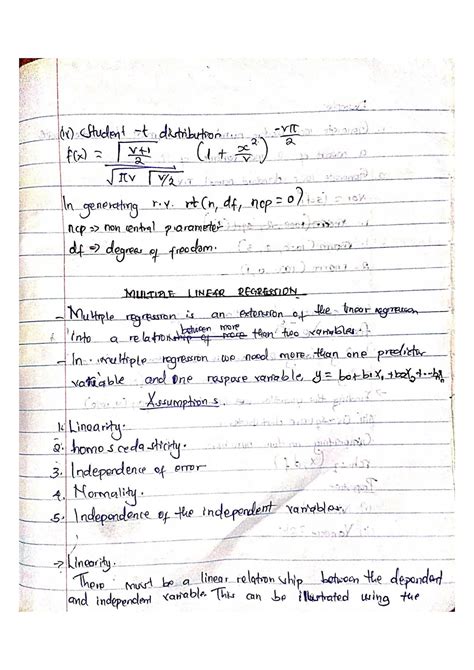 (iv) Student -t distribution
f(x) = Γ v+1/2 / √πv Γ v/2 (1 + x²/v)^ -vπ/2
In generating r.v. rt(n, df, ncp = 0)
ncp => non central parameter
df => degrees of freedom.
MULTIPLE LINEAR REGRESSION
- Multiple regression is an extension of the linear regression
into a relationship between more than two variables.
- In multiple regression we need more than one predictor
variable and one response variable, y = b0+b1x1+b2x2+...bnxn
Assumptions.
1. Linearity.
2. homoscedasticity.
3. Independence of error
4. Normality.
5. Independence of the independent variables.
-> Linearity.
There must be a linear relationship between the dependent
and independent variable. This can be illustrated using the